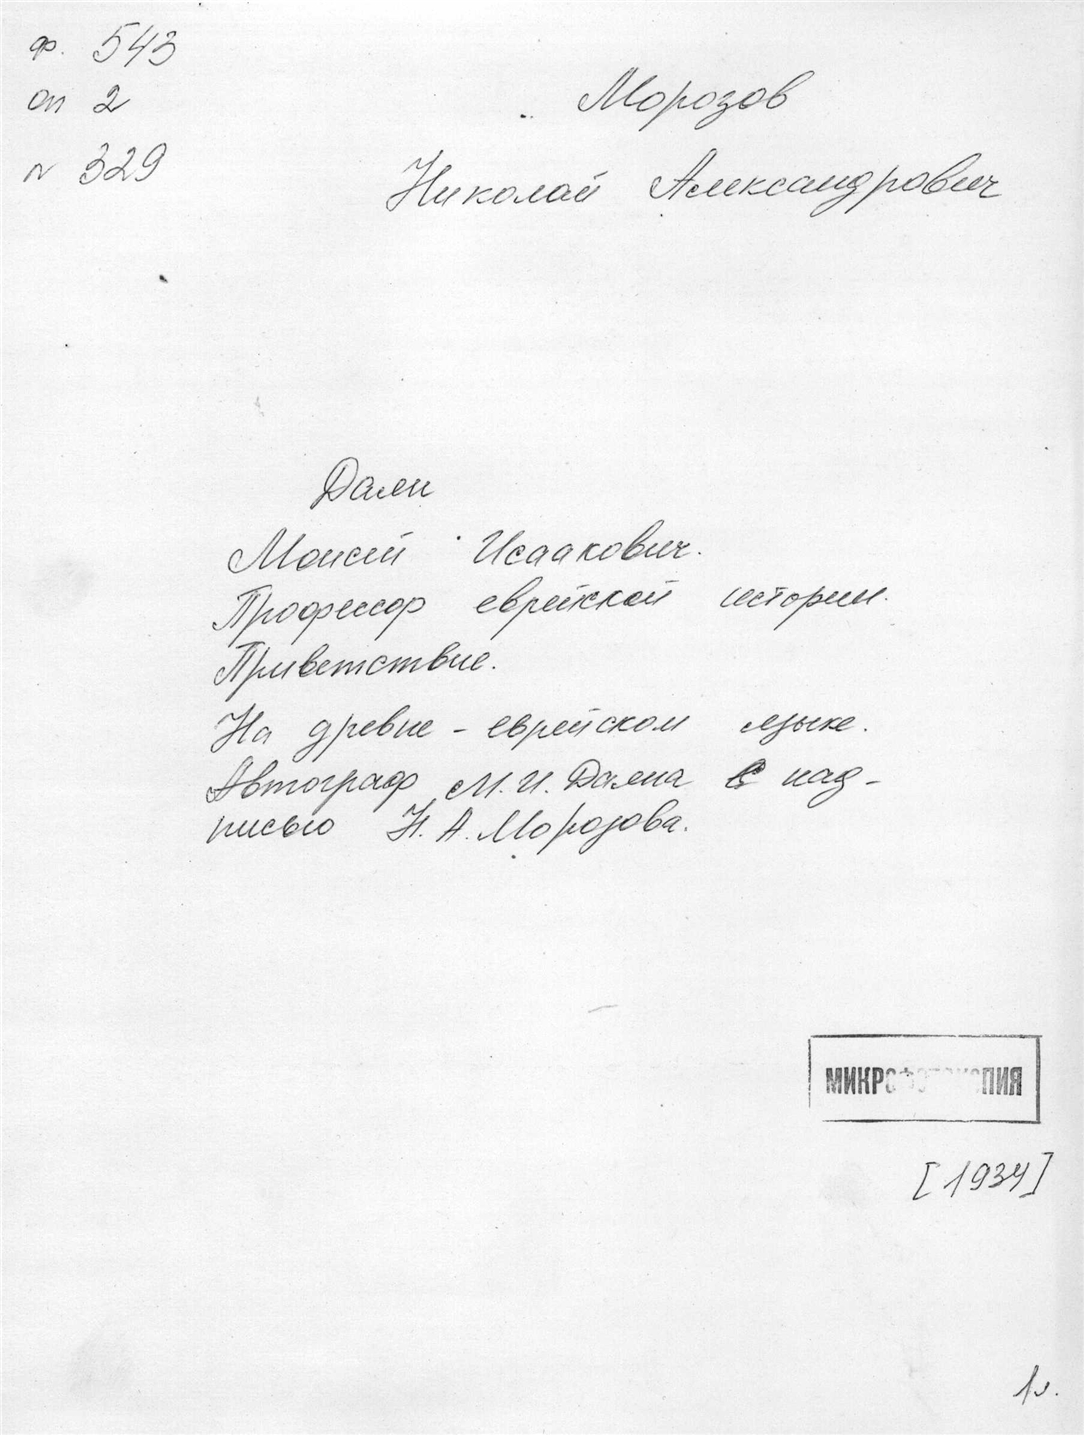 ф. 543
оп 2
N 329
Морозов
Николай Александрович
Дами
Моисей Исаакович.
Профессор еврейской истории.
Приветствие.
На древне-еврейском языке.
Автограф М. И. Дамиа с над-
писью Н. А. Морозова.
МИКРОФОТОКОПИЯ
[1934]
1 л.